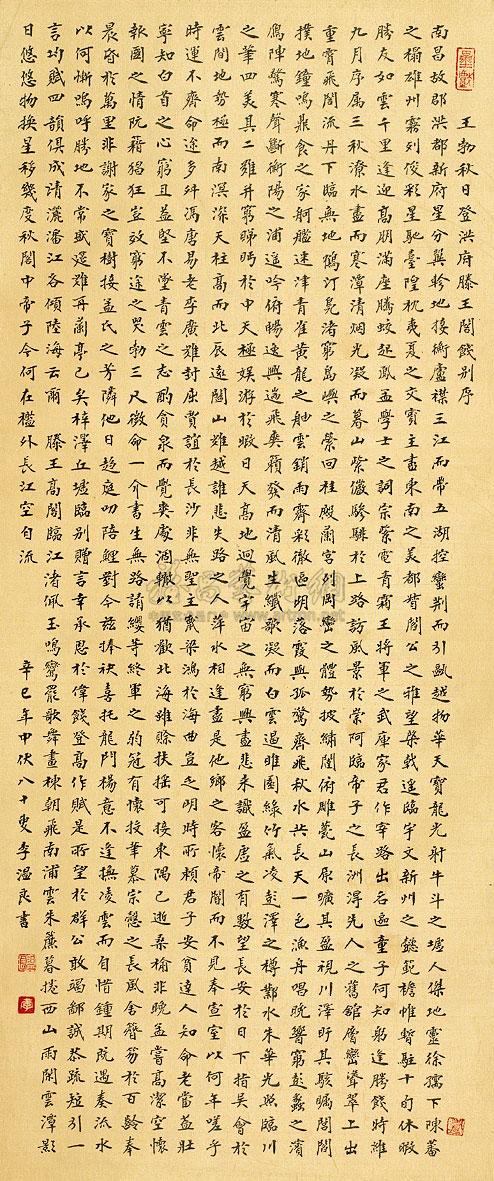 王勃秋日登洪府滕王閣餞別序
南昌故郡洪都新府星分翼軫地接衡廬襟三江而帶五湖控蠻荊而引甌越物華天寶龍光射牛斗之墟人傑地靈徐孺下陳蕃
之榻雄州霧列俊彩星馳臺隍枕夷夏之交賓主盡東南之美都督閻公之雅望棨戟遙臨宇文新州之懿範襜帷暫駐十旬休暇
勝友如雲千里逢迎高朋滿座騰蛟起鳳孟學士之詞宗紫電青霜王將軍之武庫家君作宰路出名區童子何知躬逢勝餞時維
九月序屬三秋潦水盡而寒潭清烟光凝而暮山紫儼驂騑於上路訪風景於崇阿臨帝子之長洲得先人之舊館層巒聳翠上出
重霄飛閣流丹下臨無地鶴汀鳧渚窮島嶼之縈回桂殿蘭宮列岡巒之體勢披繡闥俯雕甍山原曠其盈視川澤盱其駭矚閭閻
撲地鐘鳴鼎食之家舸艦迷津青雀黃龍之舳雲銷雨霽彩徹區明落霞與孤鶩齊飛秋水共長天一色漁舟唱晚響窮彭蠡之濱
鴈陣驚寒聲斷衡陽之浦遙吟俯暢逸興遄飛爽籟發而清風生纖歌凝而白雲遏睢園綠竹氣凌彭澤之樽鄴水朱華光照臨川
之筆四美具二難并窮睇眄於中天極娛游於暇日天高地迥覺宇宙之無窮興盡悲來識盈虛之有數望長安於日下指吳會於
雲間地勢極而南溟深天柱高而北辰遠關山難越誰悲失路之人萍水相逢盡是他鄉之客懷帝閽而不見奉宣室以何年嗟乎
時運不齊命途多舛馮唐易老李廣難封屈賈誼於長沙非無聖主竄梁鴻於海曲豈乏明時所賴君子安貧達人知命老當益壯
寧知白首之心窮且益堅不墜青雲之志酌貪泉而覺爽處涸轍以猶歡北海雖賒扶搖可接東隅已逝桑榆非晚孟嘗高潔空懷
報國之情阮籍猖狂豈效窮途之哭勃三尺微命一介書生無路請纓等終軍之弱冠有懷投筆慕宗愨之長風舍簪笏於百齡奉
晨昏於萬里非謝家之寶樹接孟氏之芳鄰他日趨庭叨陪鯉對今茲捧袂喜托龍門楊意不逢撫凌雲而自惜鍾期既遇奏流水
以何慚嗚呼勝地不常盛筵難再蘭亭已矣梓澤丘墟臨別贈言幸承恩於偉餞登高作賦是所望於群公敢竭鄙誠恭疏短引一
言均賦四韻俱成請灑潘江各傾陸海云爾 滕王高閣臨江渚佩玉鳴鸞罷歌舞畫棟朝飛南浦雲朱簾暮捲西山雨閑雲潭影
日悠悠物換星移幾度秋閣中帝子今何在檻外長江空自流 辛巳年中伏八十叟李溫良書